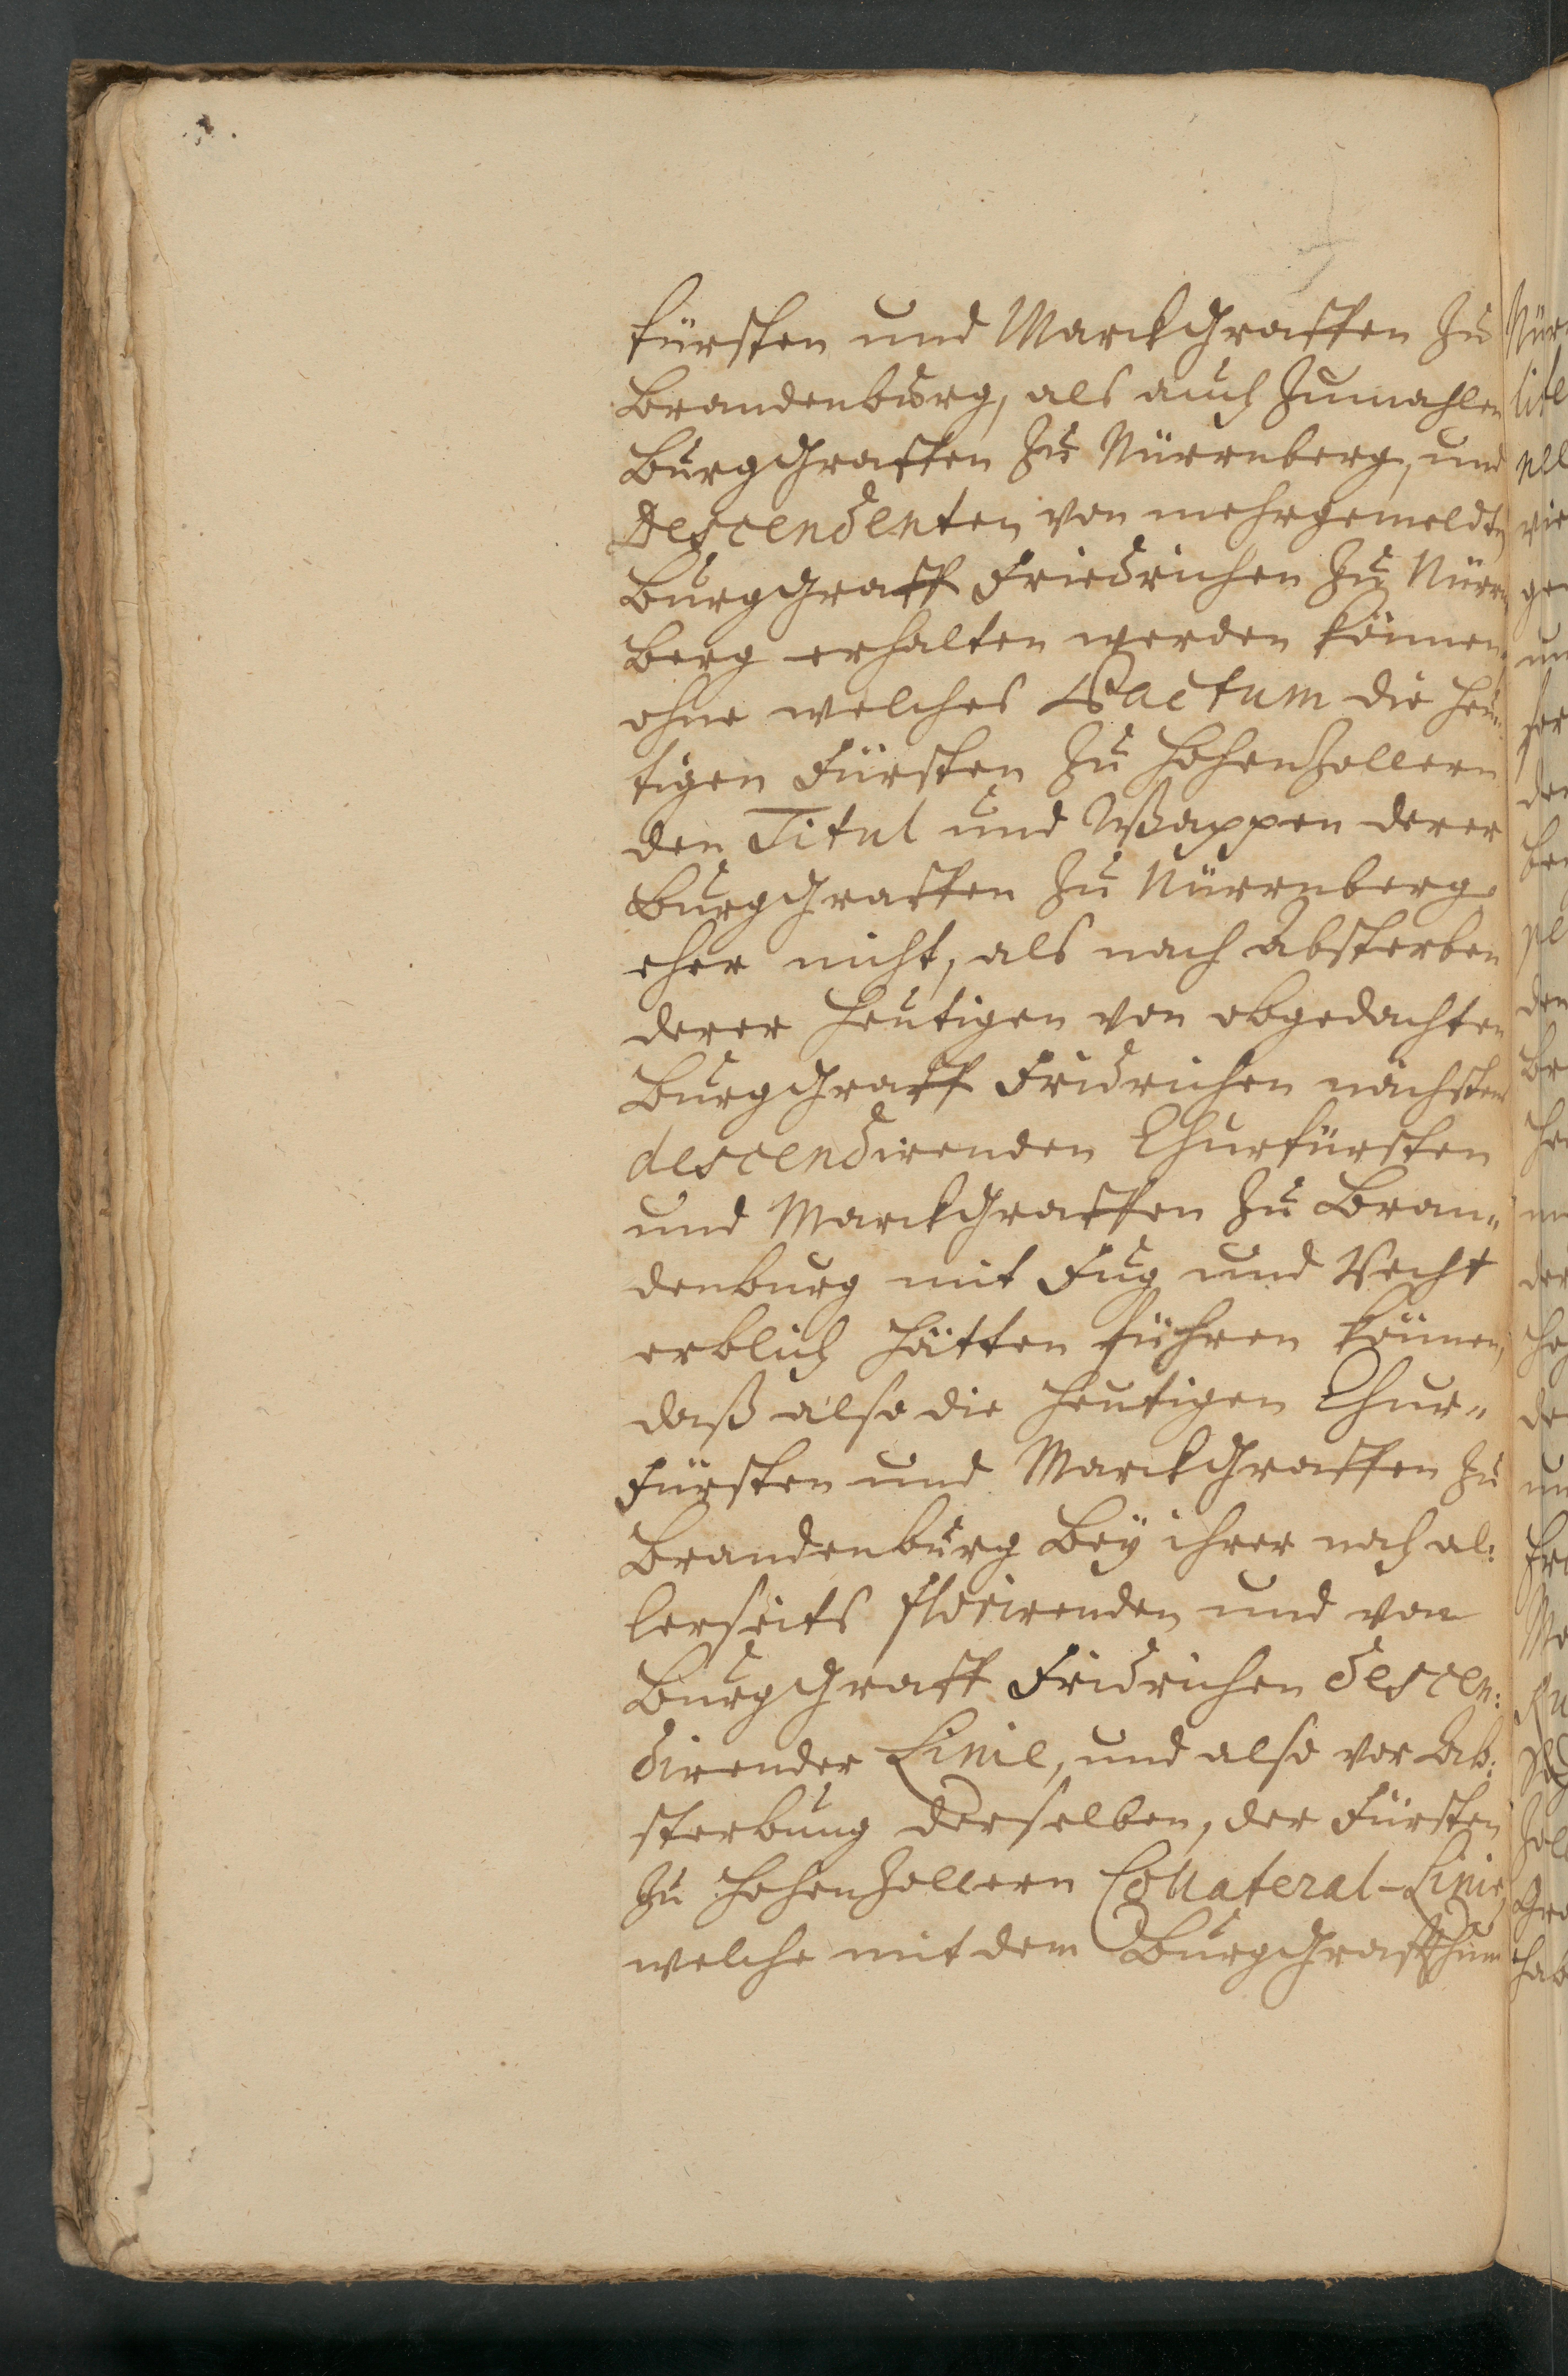 fürsten und Marckgraffen zu
Brandenburg, als auch zumahlen
Burggraffen zu Nürrnberg, und
Descendenten von mehrgemeldten
Burggraff Friedrichen zu Nürrn
berg erhalten werden können,
ohne welches Pactum die heu„
tigen Fürsten zu Hohenzollern
den Titul und Wappen derer
Burggraffen zu Nürrnberg
eher nicht, als nach Absterben
derer heutigen von obgedachten
Burggraff Fridrichen nächstens
descendirenden Churfürsten
und Marckgraffen zu Bran„
denburg mit Fug und Recht
erblich hätten führen können,
daß also die heutigen Chur„
Fürsten und Marckgraffen zu
Brandenburg bey ihrer noch al:
lerseits florirenden und von
Burggraff Fridrichen descen:
direnden Linie, und also vor Ab:
sterbung derselben, der Fürsten
zu Hohenzollern Collateral-Linie,
welche mit dem Burggraffthum